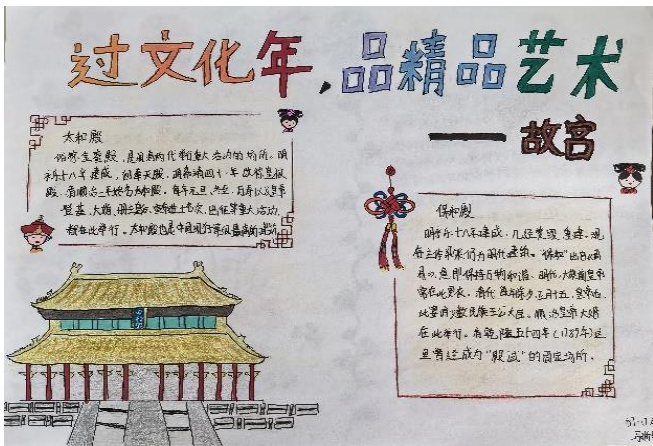 过文化年，品精品艺术
——故宫
太和殿
俗称金銮殿，是明清两代举行重大活动的场所。明
永乐十八年建成，初奉天殿，
殿，清顺治二年始名太和殿，每年元旦、冬至、万寿以及皇帝
登基、大婚、册立皇后、
都在此举行。太和殿也是中国现存
保和殿
明永乐十八年建成，几经焚毁、重建，现
存主体梁架仍为明代建筑。"保和"出自《周
易》，意即保持万物和谐。明代大典前皇帝
常在此更衣。清代每年除夕、正月十五，皇帝在
此宴请少数民族王公大臣。顺治皇帝大婚
在此举行。自乾隆五十四年（1789年）这
里曾经成为"殿试"的固定场所。